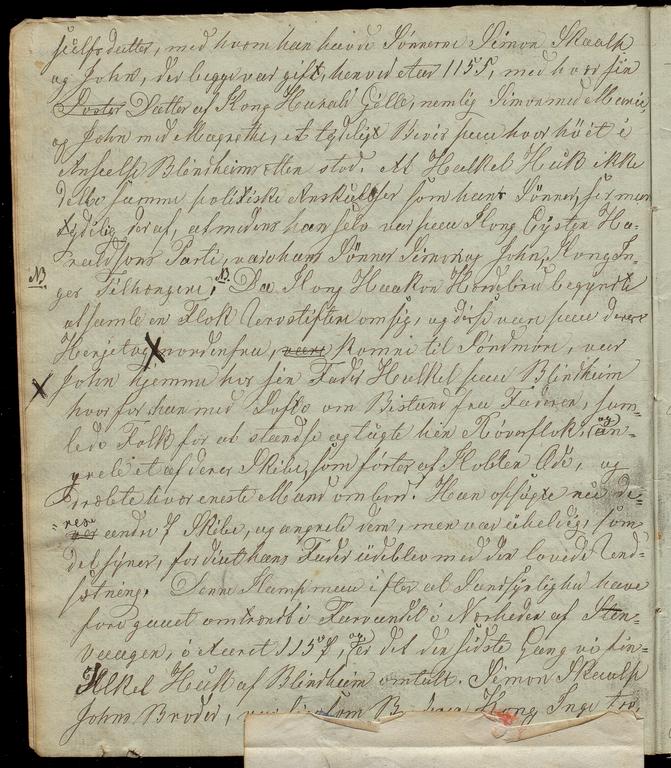 sulfs datter, med hvem han havde Sønnerne Simon Skaalp
og John, der begge var gift, henved etar 1155, med hver sin
Søster Datter af Kong Harald Gille, nemlig Simon med Marie,
og John med Magrethe, et tydeligt Bevis paa hvor høit i
Anseelse Blindheims Ætten stod. At Halkel Huk ikke
delte samme politiske Anskuelser som hans Sønner, ser man
tydelig deraf, at medens han selv var paa Kong Eystein Ha-
raldsøns Parti, vare hans Sønner Simon og John, Kong In-
NB
ges Tilhængere, NB Da Kong Haakon Herdebred begyndte
at samle en Flok Urostiftere om sig, og disse vare paa deres
Herjetog nordenfra, vare komne til Søndmøre, var
John hjemme hos sin Fader Halkel paa Blindheim
hvorfor han med Løfte om Bistand fra Faderen, sam-
lede Folk for at standse og tugte hin Røverflok, og an-
greb et af deres Skibe, som førtes af Kolben Ode, og
dræbte hver eneste Mand ombord. Han opsøgte nu de-
res
var andre 7 Skibe, og angreb dem, men var uheldig, som
det synes, fordi at hans Fader udeblev med den lovede Und-
sætning. Denne Kamp maa efter al Sandsynlighed have
foregaaet omtrendt i Farvandet i Nærheden af Sten-
vaagen, i Aaret 1157, og er det den sidste Gang vi fin-
Halkel Huk af Blindheim omtalt. Simon Skaalp
Johns Broder, var Kong Inge